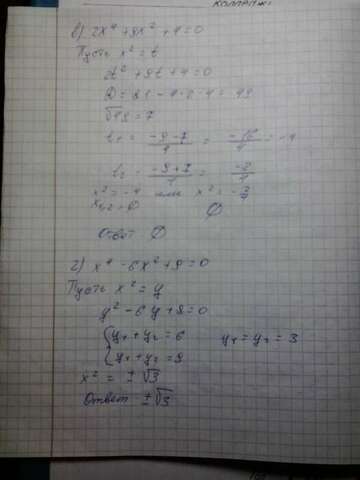 в) 2x⁴ + 9x² + 4 = 0
Пусть x² = t
2t² + 9t + 4 = 0
D = 81 - 4 · 2 · 4 = 49
√49 = 7
t₁ = (-9-7)/4 = -16/4 = -4
t₂ = (-9+7)/4 = -2/4
x² = -4 или
∅
Ответ ∅
г) x⁴ - 6x² + 9 = 0
Пусть x² = y
y² - 6y + 9 = 0
{y₁ + y₂ = 6 y₁ = y₂ = 3
{y₁ + y₂ = 9
x² = ± √3
Ответ ± √3